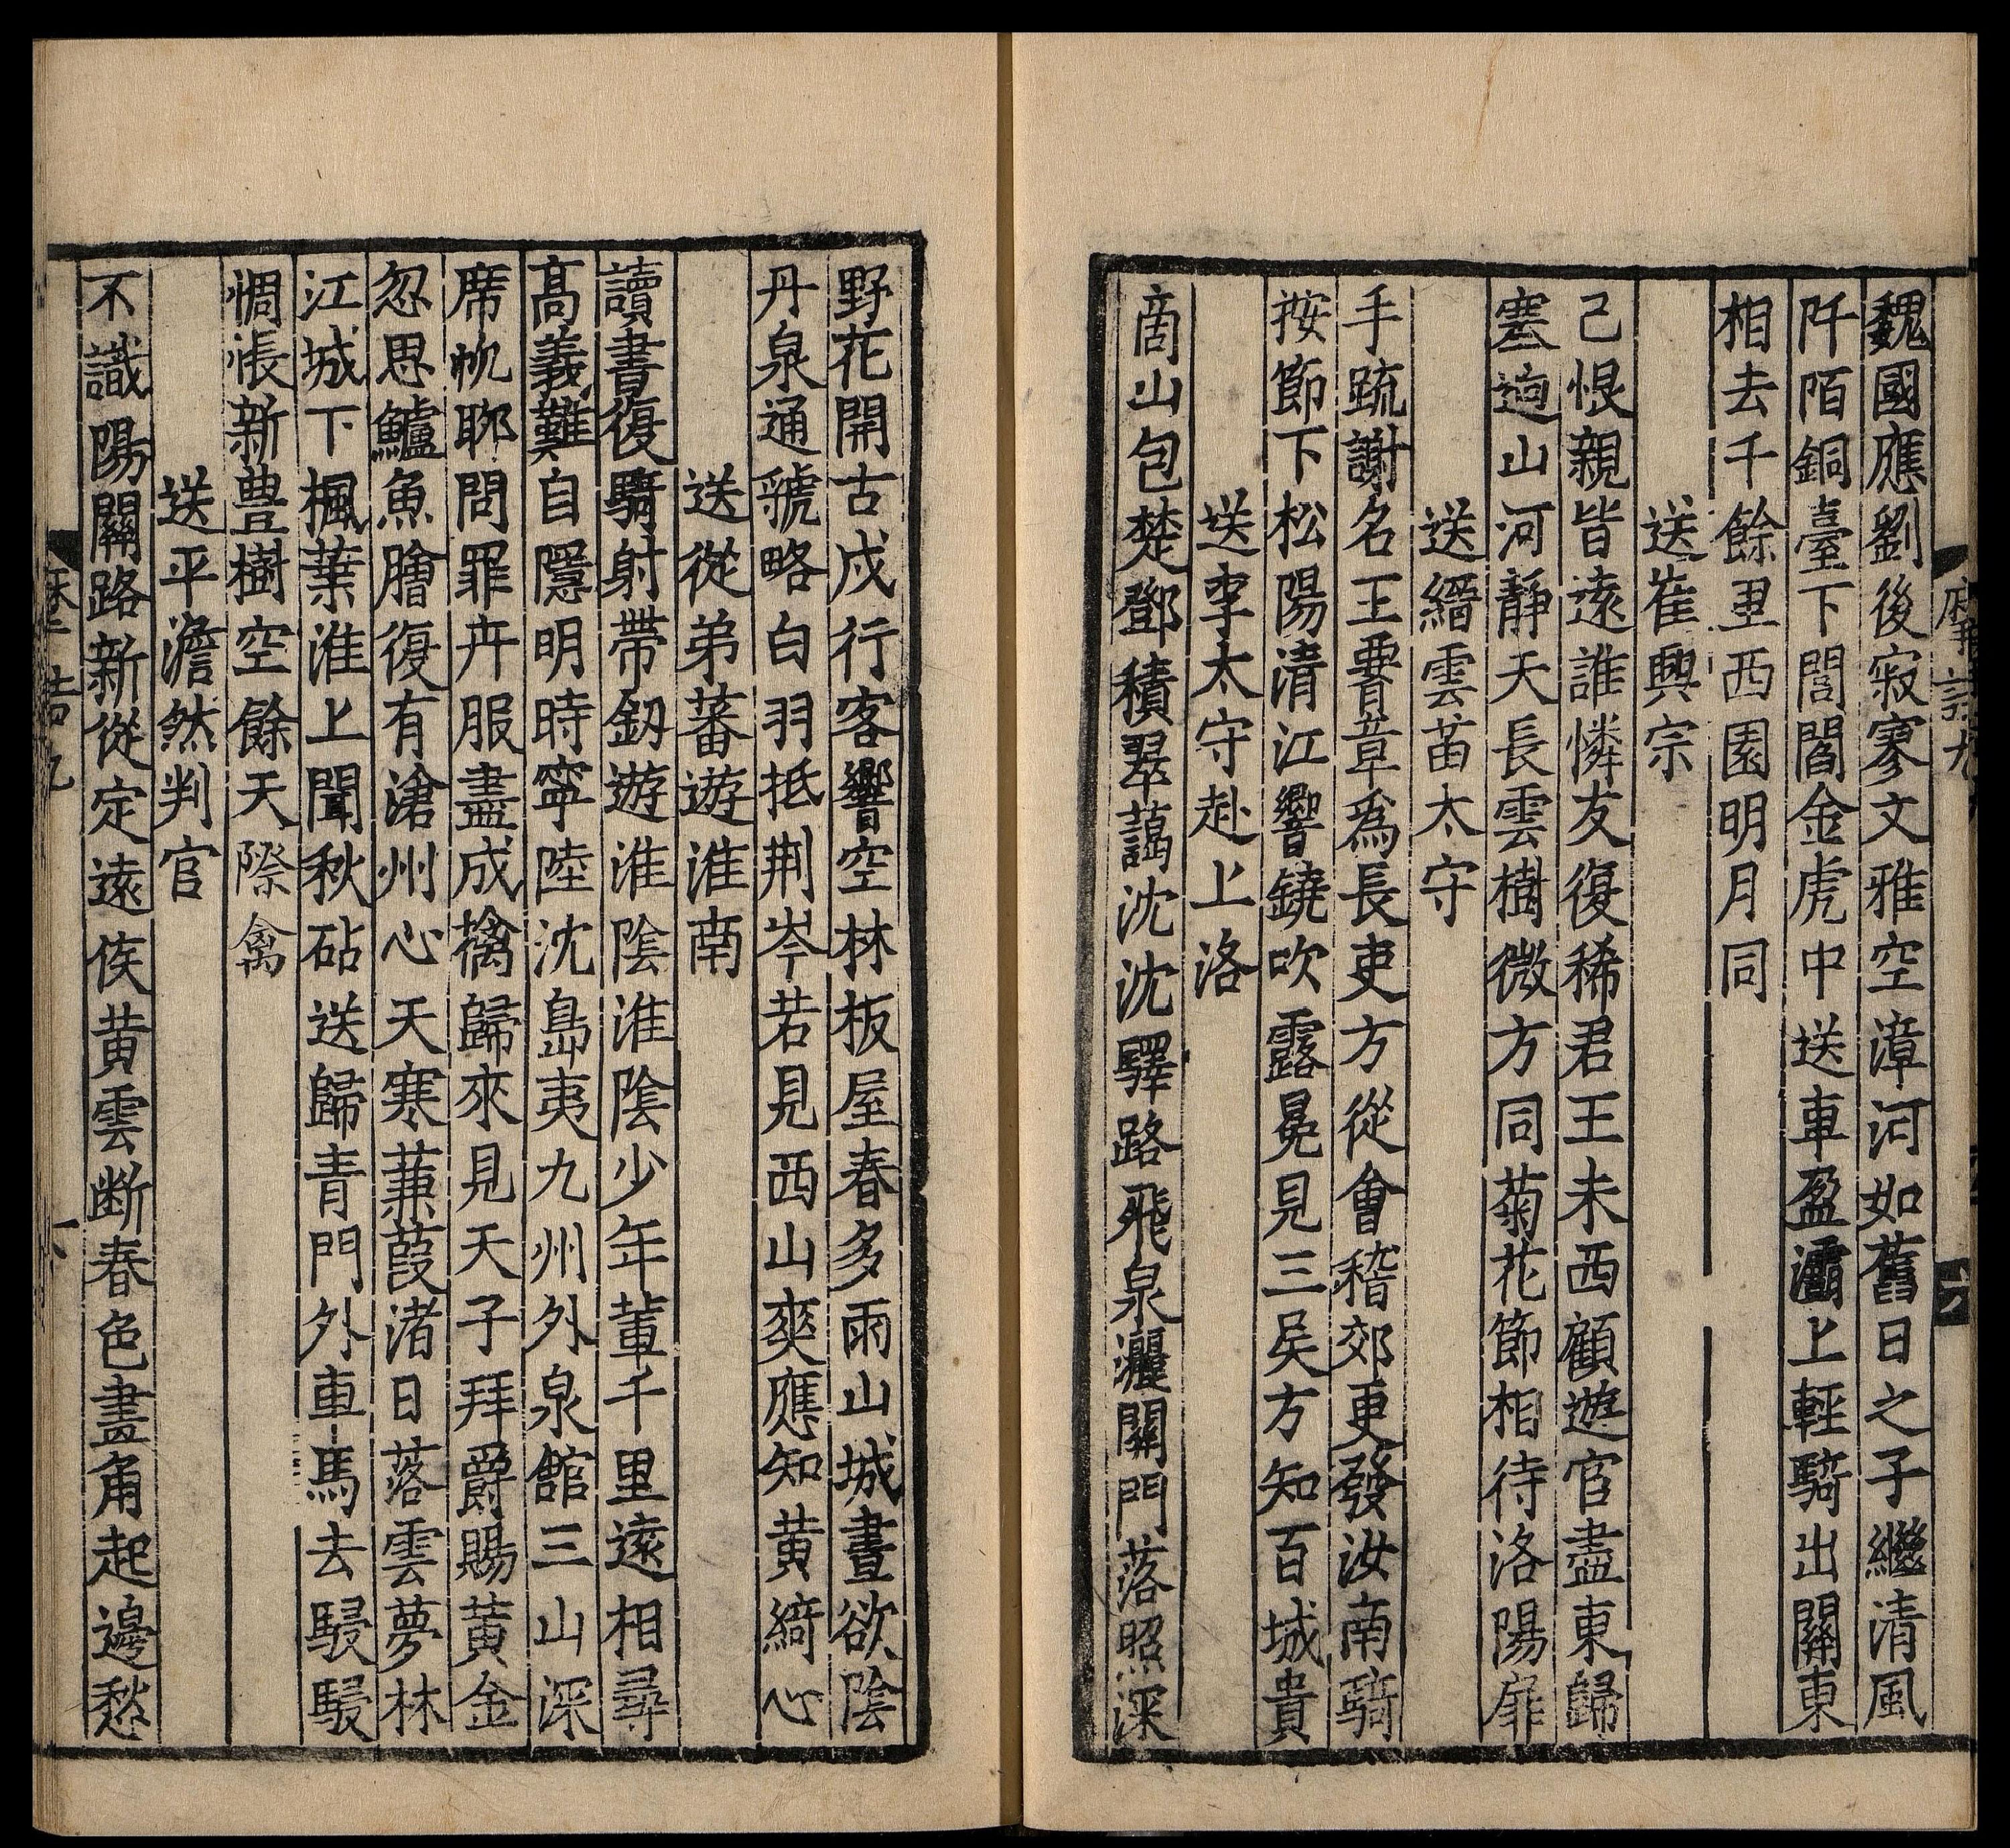 魏國應劉後寂寥文雅空漳河如舊日之子繼清風
阡陌銅臺下閭閻金虎中送車盈灞上輕騎出關東
相去千餘里西園明月同
送崔興宗
己恨親皆遠誰憐友復稀君王未西顧遊宦盡東歸
塞逈山河靜天長雲樹微方同菊花節相待洛陽扉
送縉雲苗太守
手疏謝名王腰章為長吏方從會稽郊更發汝南騎
按節下松陽清江響鐃吹露冕見三吳方知百城貴
送李太守赴上洛
商山包楚鄧積翠藹沈沈驛路飛泉灑關門落照深
野花開古戍行客響空林板屋春多雨山城晝欲陰
丹泉通虢略白羽抵荆岑若見西山爽應知黄綺心
送從弟蕃遊淮南
讀書復騎射帶劒遊淮陰淮陰少年輩千里遠相尋
高義難自隱明時寧陸沈島夷九州外泉館三山深
席帆聊問罪卉服盡成擒歸來見天子拜爵賜黄金
忽思鱸魚膾復有滄州心天寒蒹葭渚日落雲夢林
江城下楓葉淮上聞秋砧送歸青門外車馬去駸駸
惆悵新豊樹空餘天際禽
送平澹然判官
不識陽關路新從定遠侯黄雲断春色畫角起邊愁